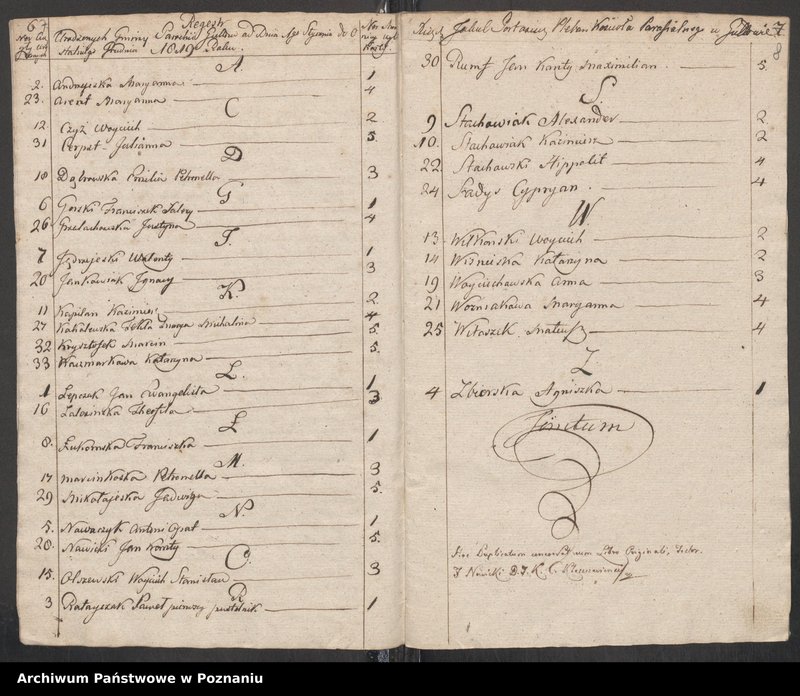 Regestr
Urodzonych Gminy od Dnia 1go Stycznia do
Grudnia 1819 Roku.
A
2. Andrzyszka Maryanna 1
23. Arent Maryanna 4
C
12 Czyż Woyciech 2
31 Julianna 5.
D
18 Dąbrowska Emilia Petronella 3
G
6 Gorski Franciszek Salezy 1
26 Justyna 4
J.
7 Walenty 1
20 Jankowiak Ignacy 3
K.
11 Kapitan Kazimierz 2
27 Tekla Michalina 4
32 Krysztofek Marcin 5
33 Kaczmarkowa Katarzyna 5.
L.
1 Lepczak Jan Ewangelista 1
16 Teofila 3
Ł
8. Łukomska Franciszka 1
M.
17 Petronella 3
29 Mikołajeska Jadwiga 5.
N.
5. Nawaczyk Antoni Opat 1
28. Nawicki Jan Kanty 5
O.
15. Olszewski Woyciech Stanisław 3
R
3 Ratayczak Paweł pierwszy pustelnik 1
Xiądz Jakub Pleban Kościoła Parafialnego w 7
8
30 Rumf Jan Kanty Maximilian 5.
S.
9 Stachowiak Alexander 2
10. Stachowiak Kazimierz 2
22 Stachowski Hippolit 4
24 Cypryan 4
W.
13 Witkoński Woyciech 2
14 Wisnieska Katarzyna 2
19 Woyciechowska Anna 3
21 Wozniakowa Maryanna 4
25 Witaszek Mateusz 4
Z
4 Zbierska Agniszka 1
Finitum
Duplicatum Libro Originali,
Nowicki
Archiwum Państwowe w Poznaniu